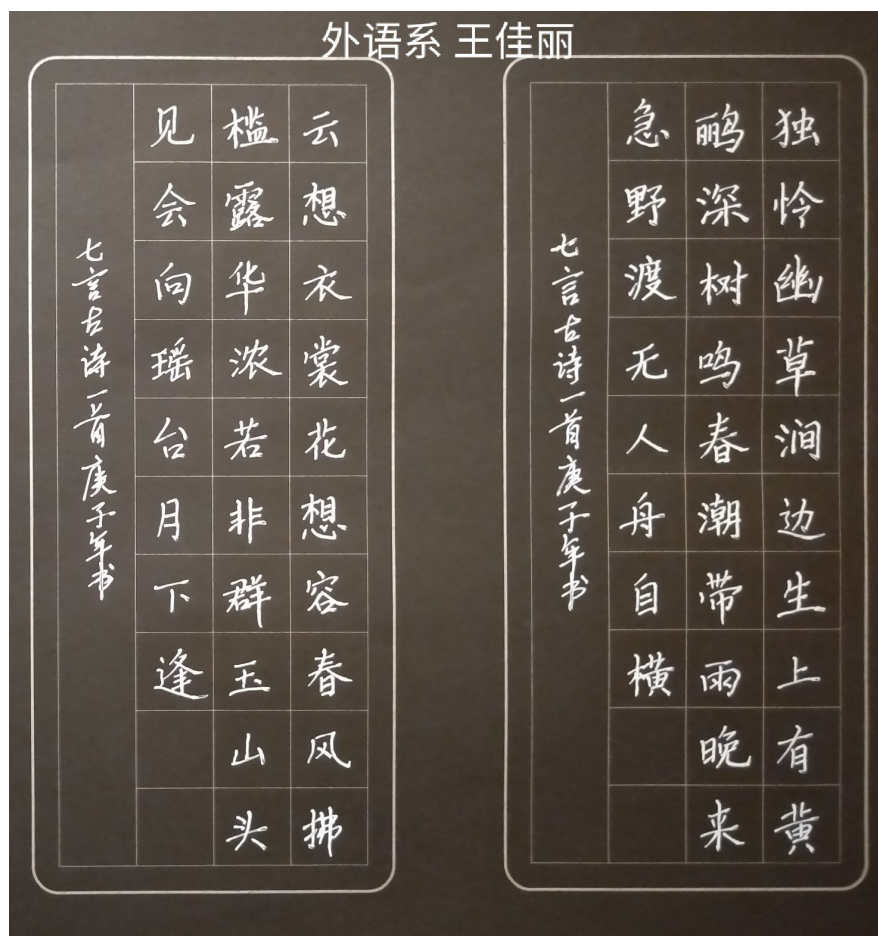 外语系 王佳丽
独怜幽草涧边生上有黄
鹂深树鸣春潮带雨晚来
急野渡无人舟自横
七言古诗一首庚子年书
云想衣裳花想容春风拂
槛露华浓若非群玉山头
见会向瑶台月下逢
七言古诗一首庚子年书